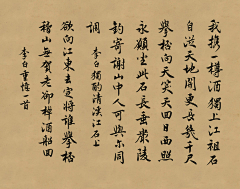 我携一樽酒獨上江祖石
自從天地開更長幾千尺
舉杯向天笑天回日西照
永願坐此石長垂嚴陵
釣寄謝山中人可與爾同
調 李白獨酌清溪江石上
欲向江東去定將誰舉杯
稽山無賀老卻棹酒船回
李白重憶一首